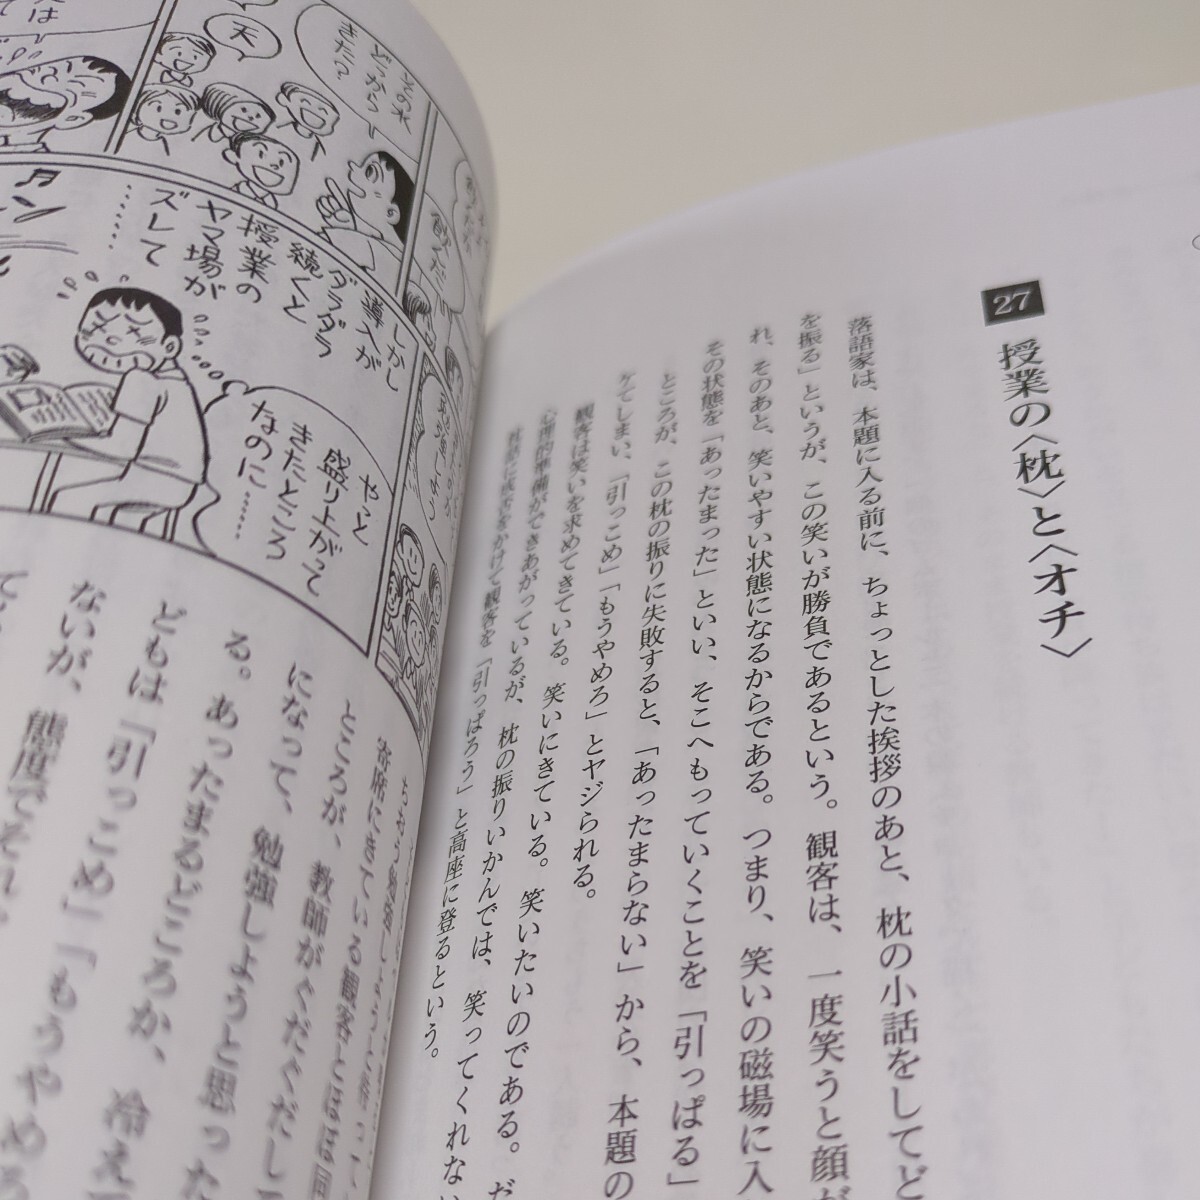 27
授業の〈枕〉と〈オチ〉
落語家は、本題に入る前に、ちょっとした挨拶のあと、枕の小話をしてど
を振る」というが、この笑いが勝負であるという。観客は、一度笑うと顔が
れ、そのあと、笑いやすい状態になるからである。つまり、笑いの磁場に入
その状態を「あったまった」といい、そこへもっていくことを「引っぱる」
ところが、この枕の振りに失敗すると、「あったまらない」から、本題の
ケてしまい、「引っこめ」「もうやめろ」とヤジられる。
観客は笑いを求めてきている。笑いにきている。笑いたいのである。だ
心理的準備ができあがっているが、枕の振りいかんでは、笑ってくれない
枕話に成否をかけて観客を「引っぱろう」と高座に登るという。
その水
どっから
きた？
天
飲んだ
しかし
導入が
ダラダラ
続くと
授業の
ヤマ場が
ズレて
……
やっと
盛り上がって
きたところ
なのに……
寄席にきている観客とほぼ同
ところが、教師がぐだぐだして
になって、勉強しようと思った
る。あったまるどころか、冷えて
どもは「引っこめ」「もうやめろ
ないが、態度でそれ